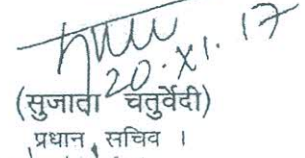 20.XI.17
(सुजाता चतुर्वेदी)
प्रधान सचिव ।